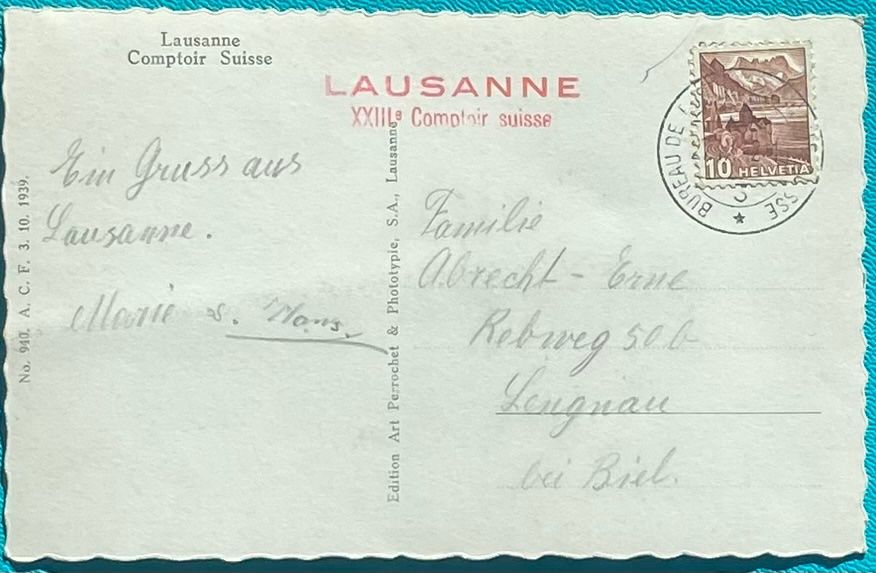 Lausanne
Comptoir Suisse
LAUSANNE
XXIIIe Comptoir suisse
Ein Gruss aus
Lausanne.
Marie s. Hans.
No. 940. A. C. F. 3. 10. 1939.
Edition Art Perrochet & Phototypie, S.A., Lausanne
BUREAU DE
SSE
10 HELVETIA
Familie
Abrecht - Erne
Rebweg 50 b
Lengnau
bei Biel.